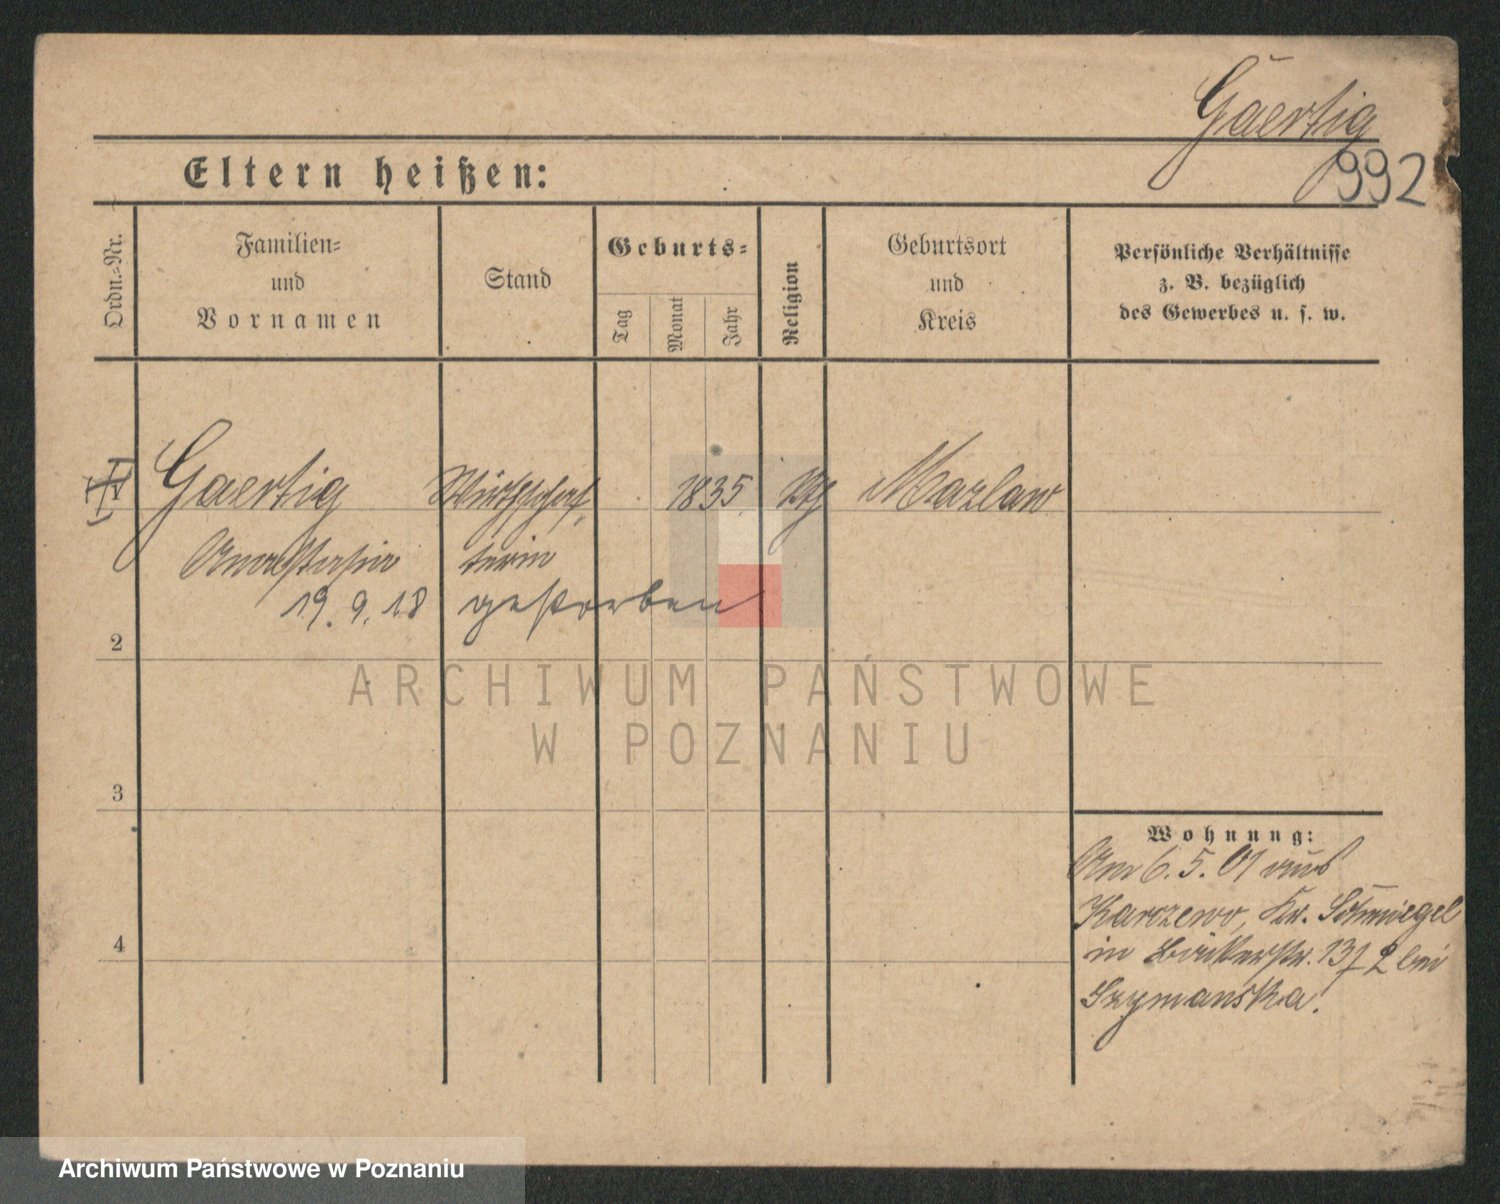 Gaertig
992
Eltern heißen:
Ordn.-Nr.
Familien-
und
Vornamen
Stand
Geburts-
Tag
Monat
Jahr
Religion
Geburtsort
und
Kreis
Persönliche Verhältnisse
z. B. bezüglich
des Gewerbes u. s. w.
Gaertig Wirthschaf- 1835 Mazlaw
Anastasia terin
19. 9. 18 gestorben
2
3
4
ARCHIWUM PAŃSTWOWE
W POZNANIU
Wohnung:
Am 6. 5. 01 aus
Karczewo, Kr. Schmiegel
in Bäckerstr. 13 bei
Szymanska.
Archiwum Państwowe w Poznaniu